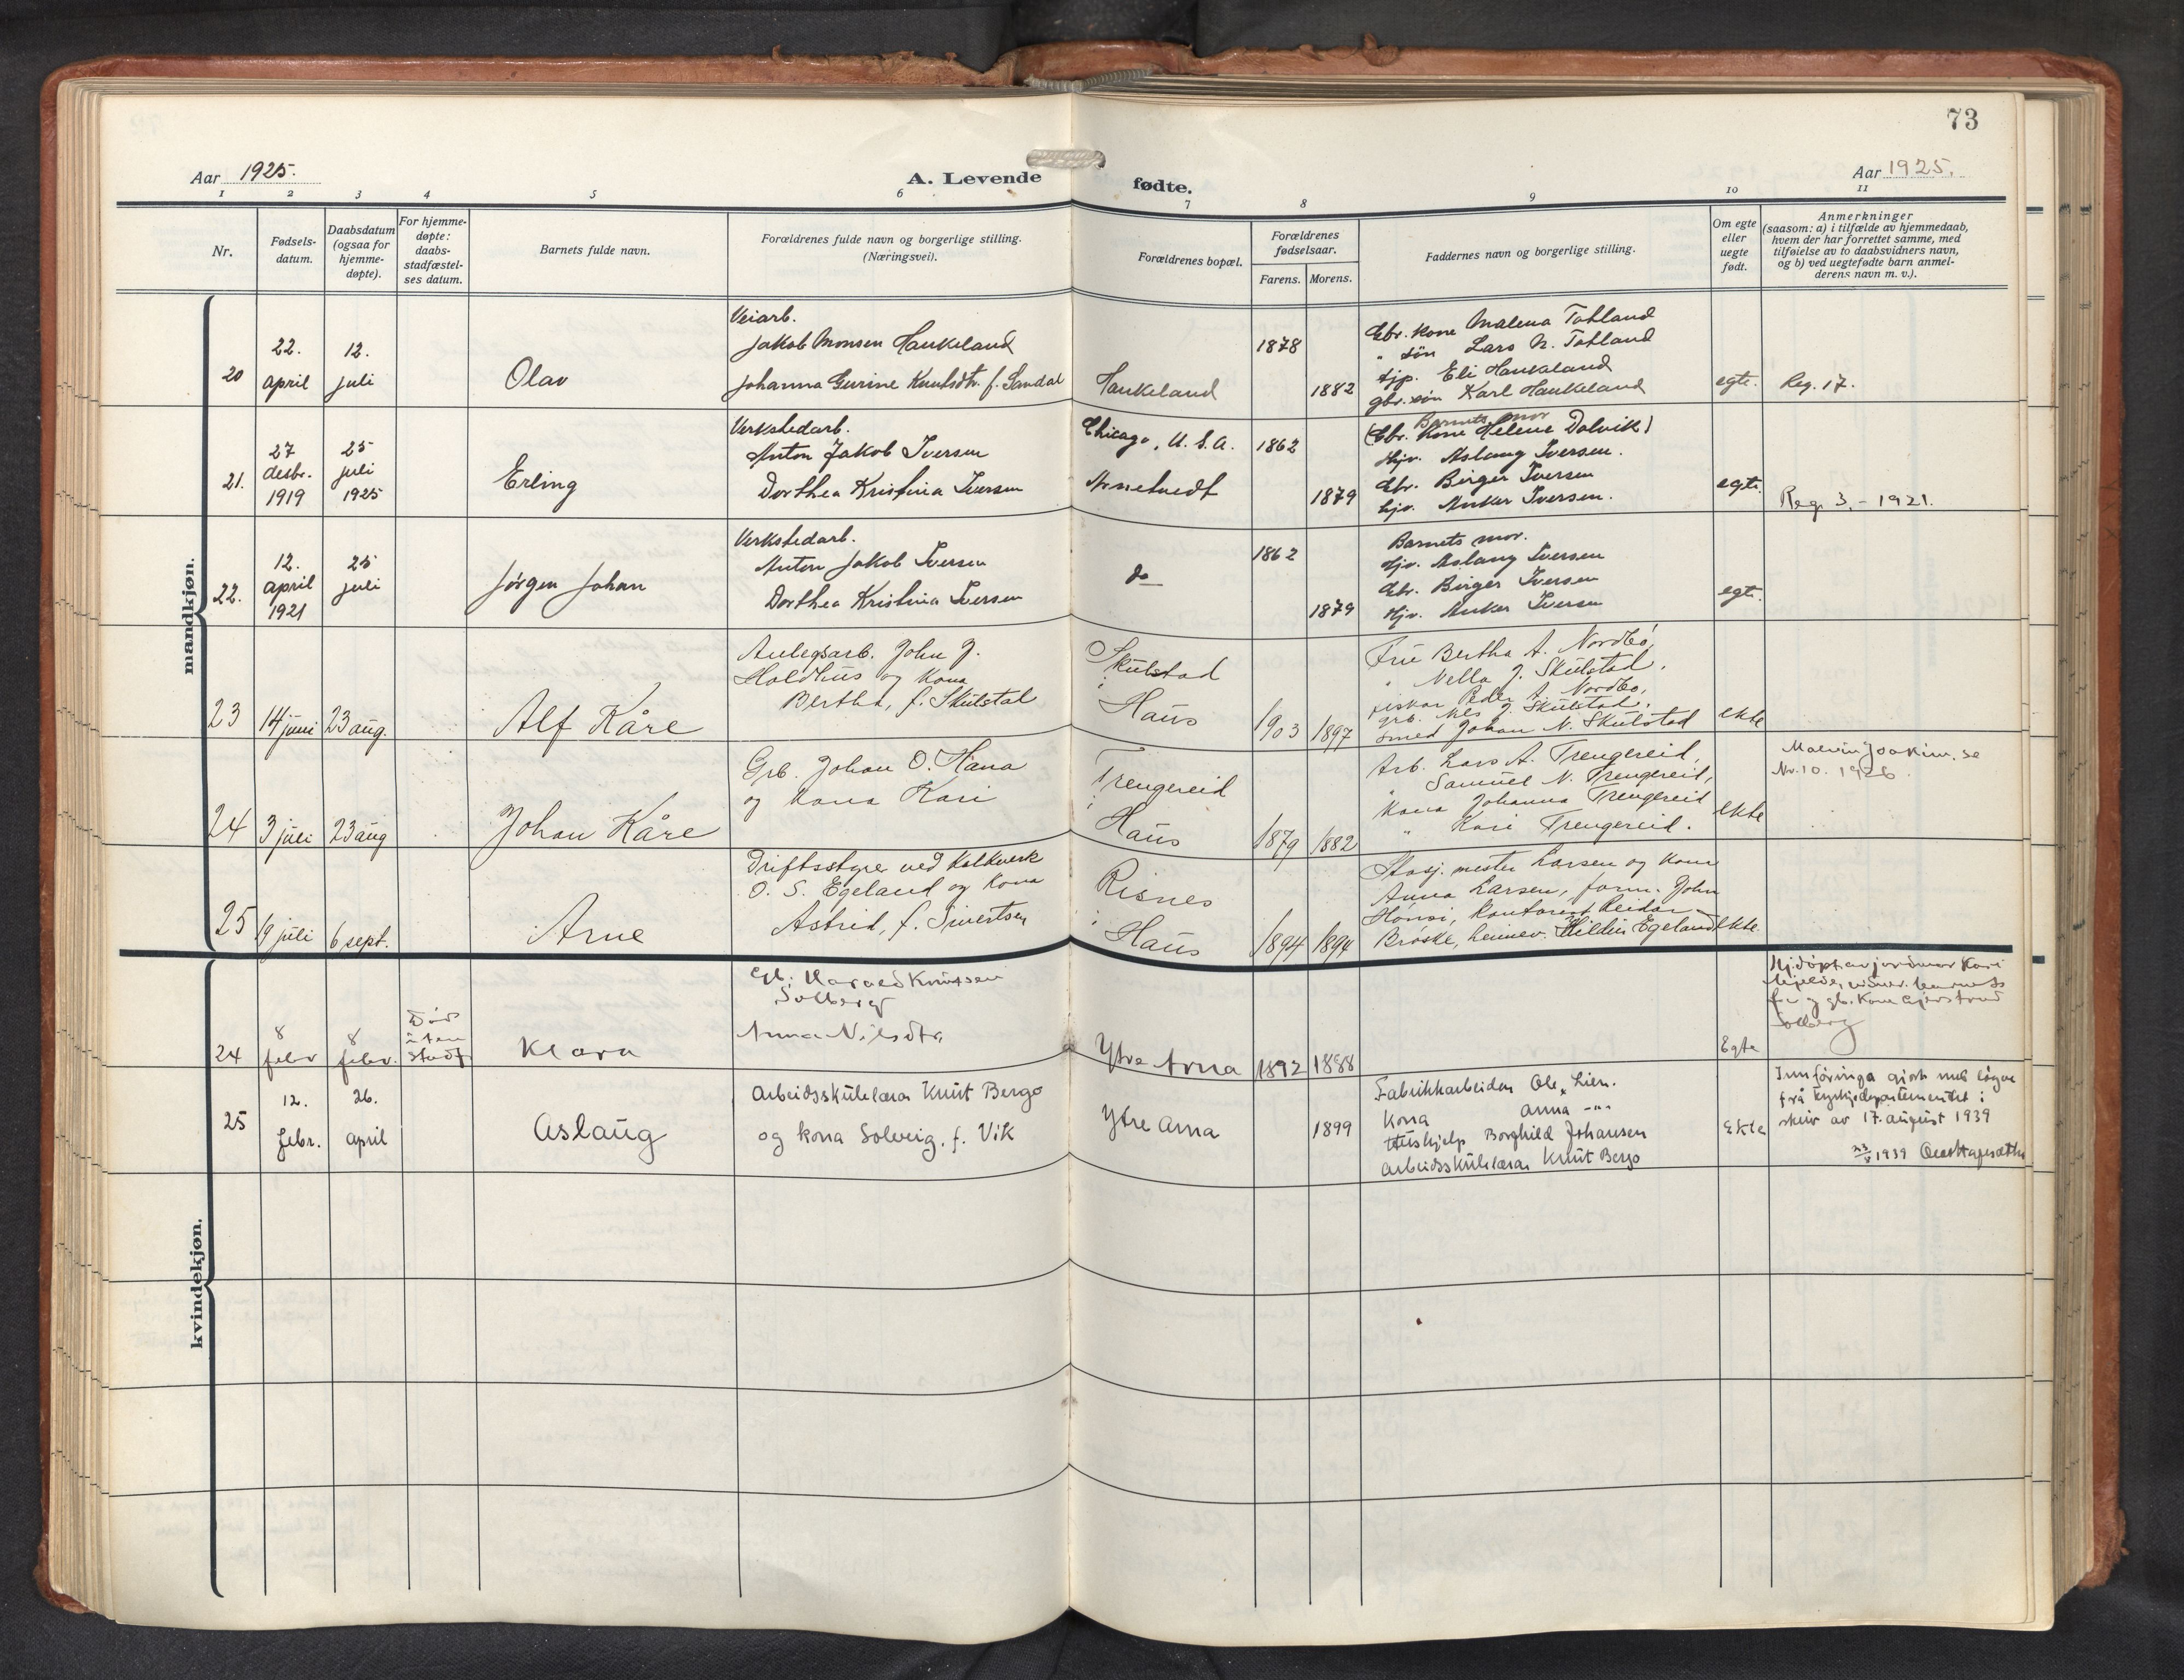 73
Aar 1925.
A. Levende
fødte.
Aar 1925.
1 2 3 4 5 6 7 8 9 10 11
Nr.
Fødsels-
datum.
Daabsdatum
(ogsaa for
hjemme-
døpte).
For hjemme-
døpte:
daabs-
stadfæstel-
ses datum.
Barnets fulde navn.
Forældrenes fulde navn og borgerlige stilling.
(Næringsvei).
Forældrenes bopæl.
Forældrenes
fødselsaar.
Farens. Morens.
Faddernes navn og borgerlige stilling.
Om egte
eller
uegte
født.
Anmerkninger
(saasom: a) i tilfælde av hjemmedaab,
hvem der har forrettet samme, med
tilføielse av to daabsvidners navn,
og b) ved uegtefødte barn anmel-
derens navn m. v.).
mandkjøn.
20
22.
april
12.
juli
Olav
Veiarb.
Jakob Monsen Haukeland
Johanna Gurine Knutsdtr. f. Sandal
Haukeland
1878
1882
Gbr. kone Malena Totland
" søn Lars N. Totland
tjp. Eli Haukeland
gbr. søn Karl Haukeland
egte.
Reg. 17.
21.
27
desbr.
1919
25
juli
1925
Erling
Verkstedarb.
Anton Jakob Iversen
Dorthea Kristina Iversen
Chicago, U. S. A.
Arnetvedt
1862
1879
Barnets mor
(Gbr. Kone Helene Dalvik)
Hjv. Aslaug Iversen.
Gbr. Birger Iversen
hjv. Anker Iversen.
egte.
Reg. 3. - 1921.
22.
12.
april
1921
25
juli
Jørgen Johan
Verkstedarb.
Anton Jakob Iversen
Dorthea Kristina Iversen
do
1862
1879
Barnets mor.
Hjv. Aslaug Iversen
Gbr. Birger Iversen
Hjv. Anker Iversen
egte.
23
14 juni
23 aug.
Alf Kåre
Anlegsarb. John J.
Holdhus og kona
Bertha, f. Skulstad
Skulstad
i
Haus
1903
1897
Fru Bertha A. Nordbø,
" Nella J. Skulstad.
fiskar Peder A. Nordbø,
grb. Nls J. Skulstad,
smed Johan N. Skulstad
ekte
24
3 juli
23 aug
Johan Kåre
Grb. Johan O. Hana
og kona Kari
Trengereid
i
Haus
1879
1882
Arb. Lars A. Trengereid,
" Samuel N. Trengereid,
Kona Johanna Trengereid
" Kari Trengereid.
ekte
Malvin Joakim, se
Nr. 10. 1926.
25
9 juli
6 sept.
Arne
Driftsstyrer ved Kalkverk
O. S. Egeland og kona
Astrid, f. Sivertsen
Risnes
i
Haus
1894
1894
Stasj. mester Larsen og kona
Anna Larsen, form. John
Hønsi, Kontorist Reidar
Brøske, heimev. Hildur Egeland
ekte.
kvindekjøn.
24
8
febr
8
febr.
Død
uten
stadf
Klara
Gb. Harald Knutsen
Solberg
Anna Nilsdtr.
Ytre Arna
1892
1888
Egte
Hjdøpt av jordmor Kari
Mjelde,
far og gb. kone Gjertrud
Solberg
25
12.
febr.
26.
april
Aslaug
Arbeidsskulelærar Knut Bergo
og kona Solveig, f. Vik
Ytre Arna
1899
Fabrikkarbeidar Ole Lien.
Kona Anna -"-
Hushjelp Borghild Johansen
Arbeidsskulelærar Knut Bergo
Ekte
Innføringa gjort med løyve
frå kyrkjedepartementet i
skriv av 17. august 1939
1939